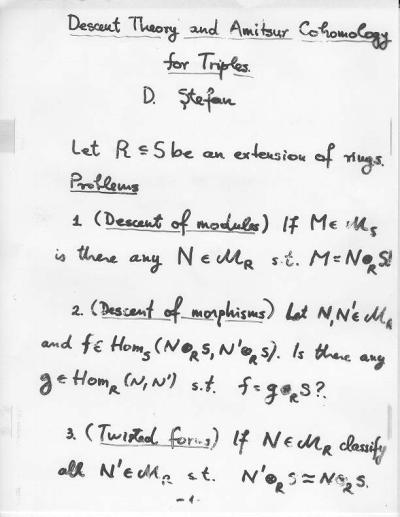 Descent Theory and Amitsur Cohomology
for Triples.
D. Ştefan
Let R ⊆ S be an extension of rings.
Problems
1. (Descent of modules) If M ∈ ℳ_S
is there any N ∈ ℳ_R s.t. M = N⊗_R S?
2. (Descent of morphisms) Let N, N' ∈ ℳ_R
and f ∈ Hom_S (N⊗_R S, N'⊗_R S). Is there any
g ∈ Hom_R (N, N') s.t. f = g⊗_R S?.
3. (Twisted forms) If N ∈ ℳ_R classify
all N' ∈ ℳ_R s.t. N'⊗_R S ≃ N⊗_R S.
-1-